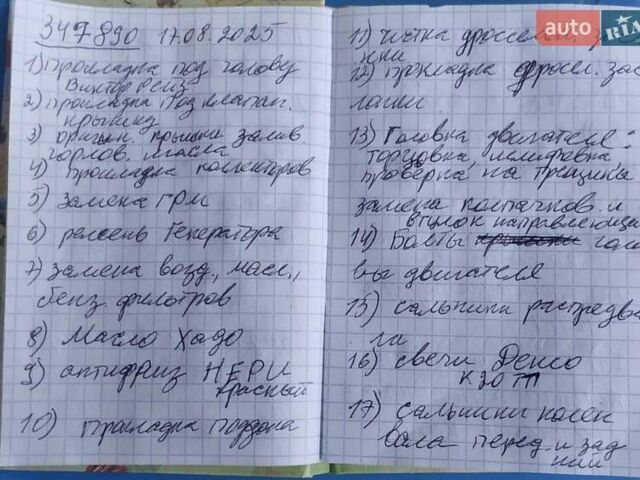 347890 17.08.2025
1) прокладка под голову
Виктор Рейз
2) прокладка под клапан.
крышку
3) оригин. крышка залив.
горлов. масла
4) прокладки коллекторов
5) замена ГРМ
6) ремень Генератора
7) замена возд., масл.,
бенз. филтров
8) Масло Хадо
9) антифриз НЕРИ
красный
10) прокладка поддона
11) чистка дроссельн. зас
нки
12) прокладка дросел. зас
лонки
13) Головка двигателя:
торцовка, шлифовка,
проверка на трещины
замена колпачков и
втулок направляющи
14) Болты голо
вы двигателя
15) сальники распредва
ла
16) свечи Денсо
К20ТТ
17) сальники колен
вала перед. и зад
ний
auto RIA